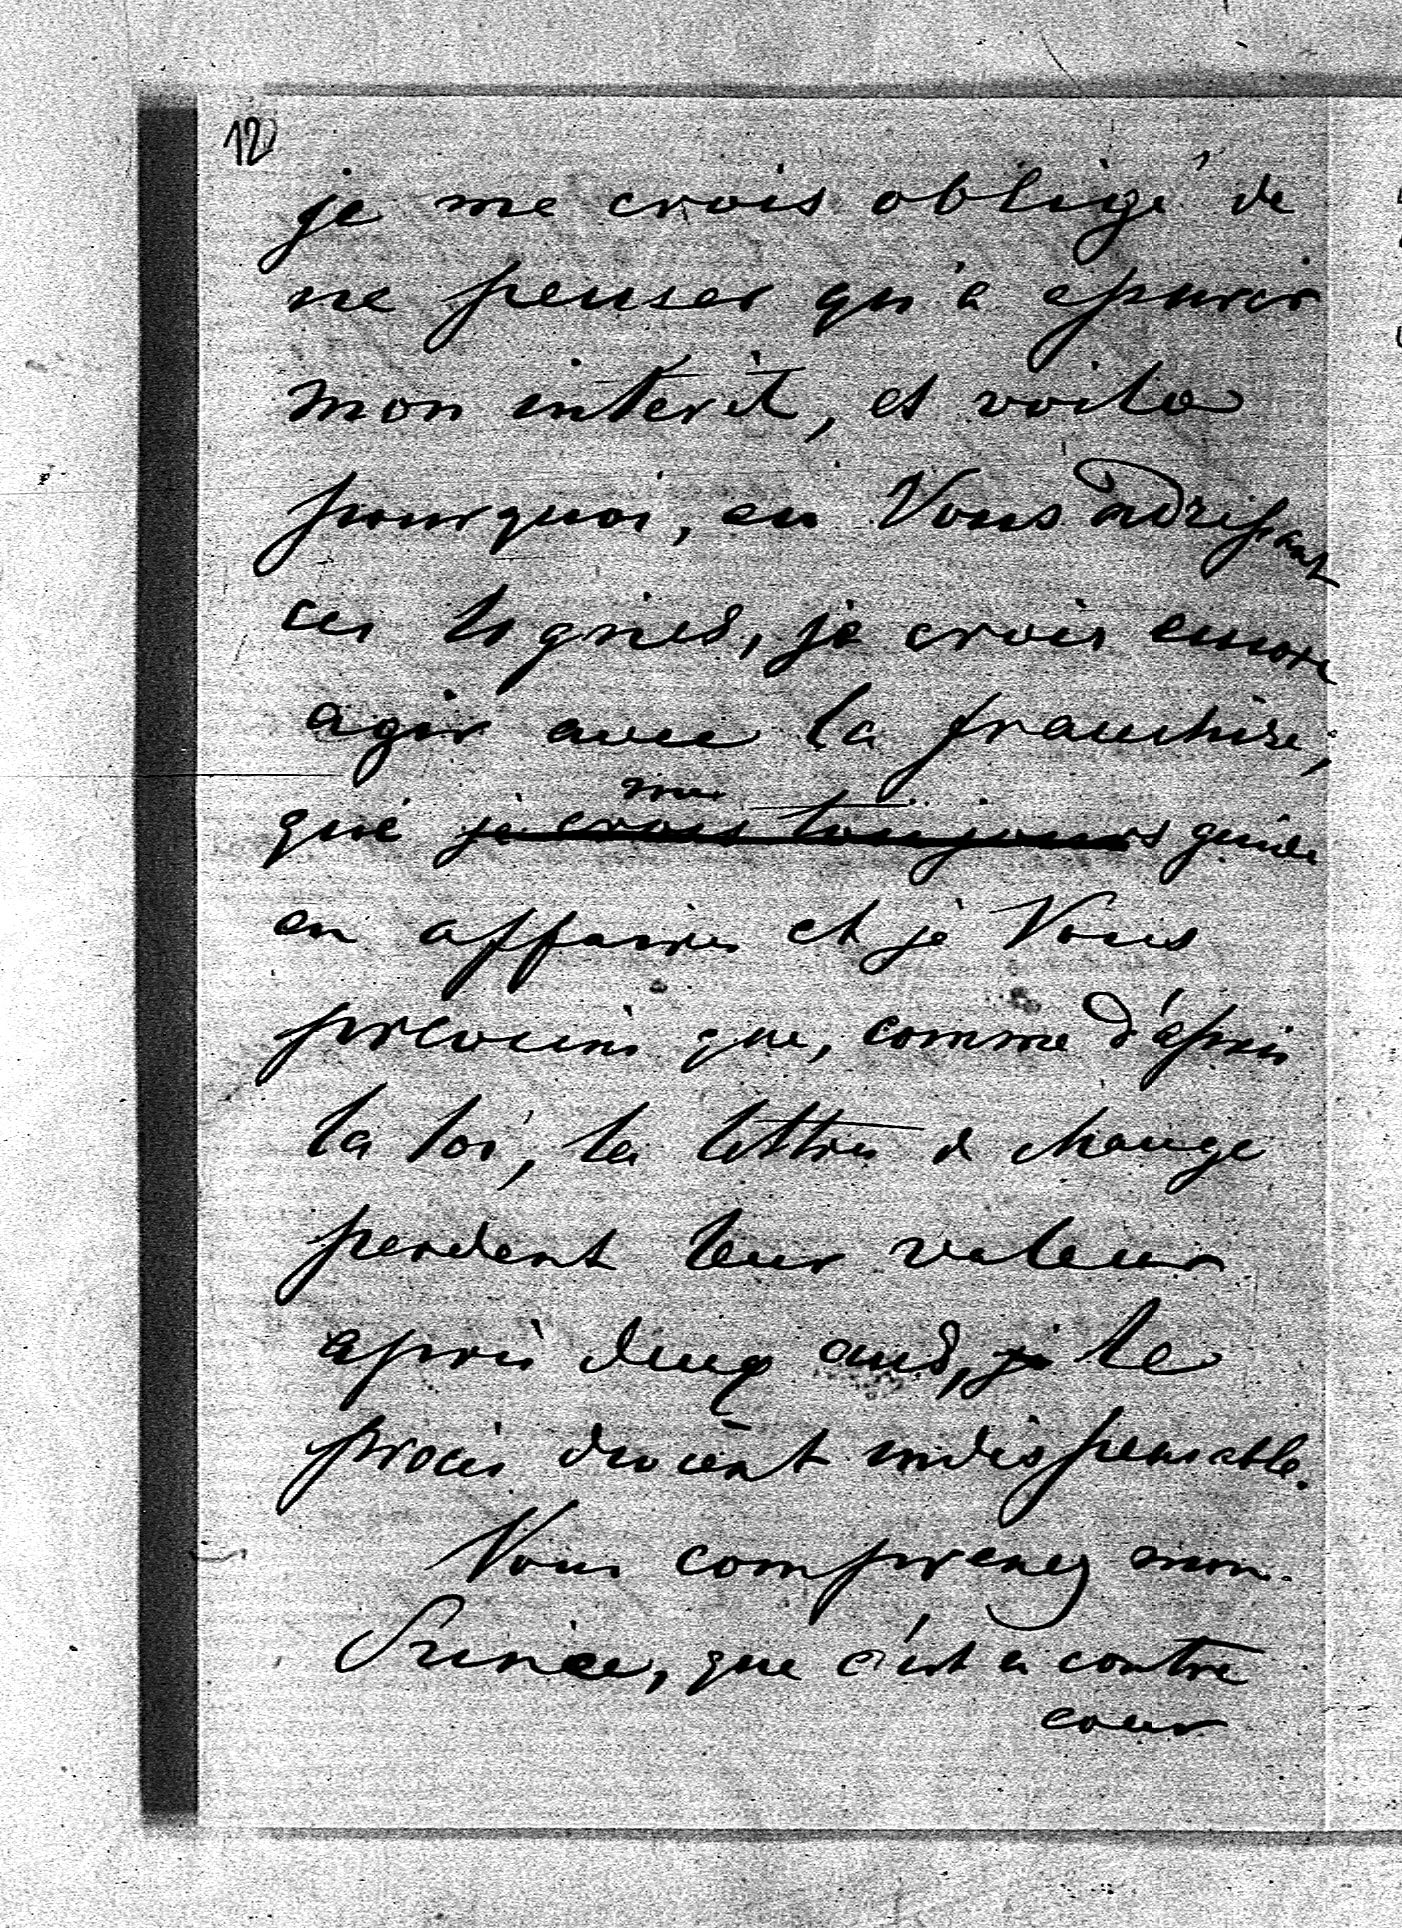 12
je me crois obligé de
ne penser qu'à épurer
mon interêt, et voila
pourquoi, en Vous adressant
ces lignes, je crois encore
agir avec la franchise,
me
que je crois toujours guide
en affaires et je Vous
previens que, comme d'après
la loi, les lettres de change
perdent leur valeur
après deux ans, je le
procès devient indispensable.
Vous comprenez mon
Prince, que c'est a contre
coeur